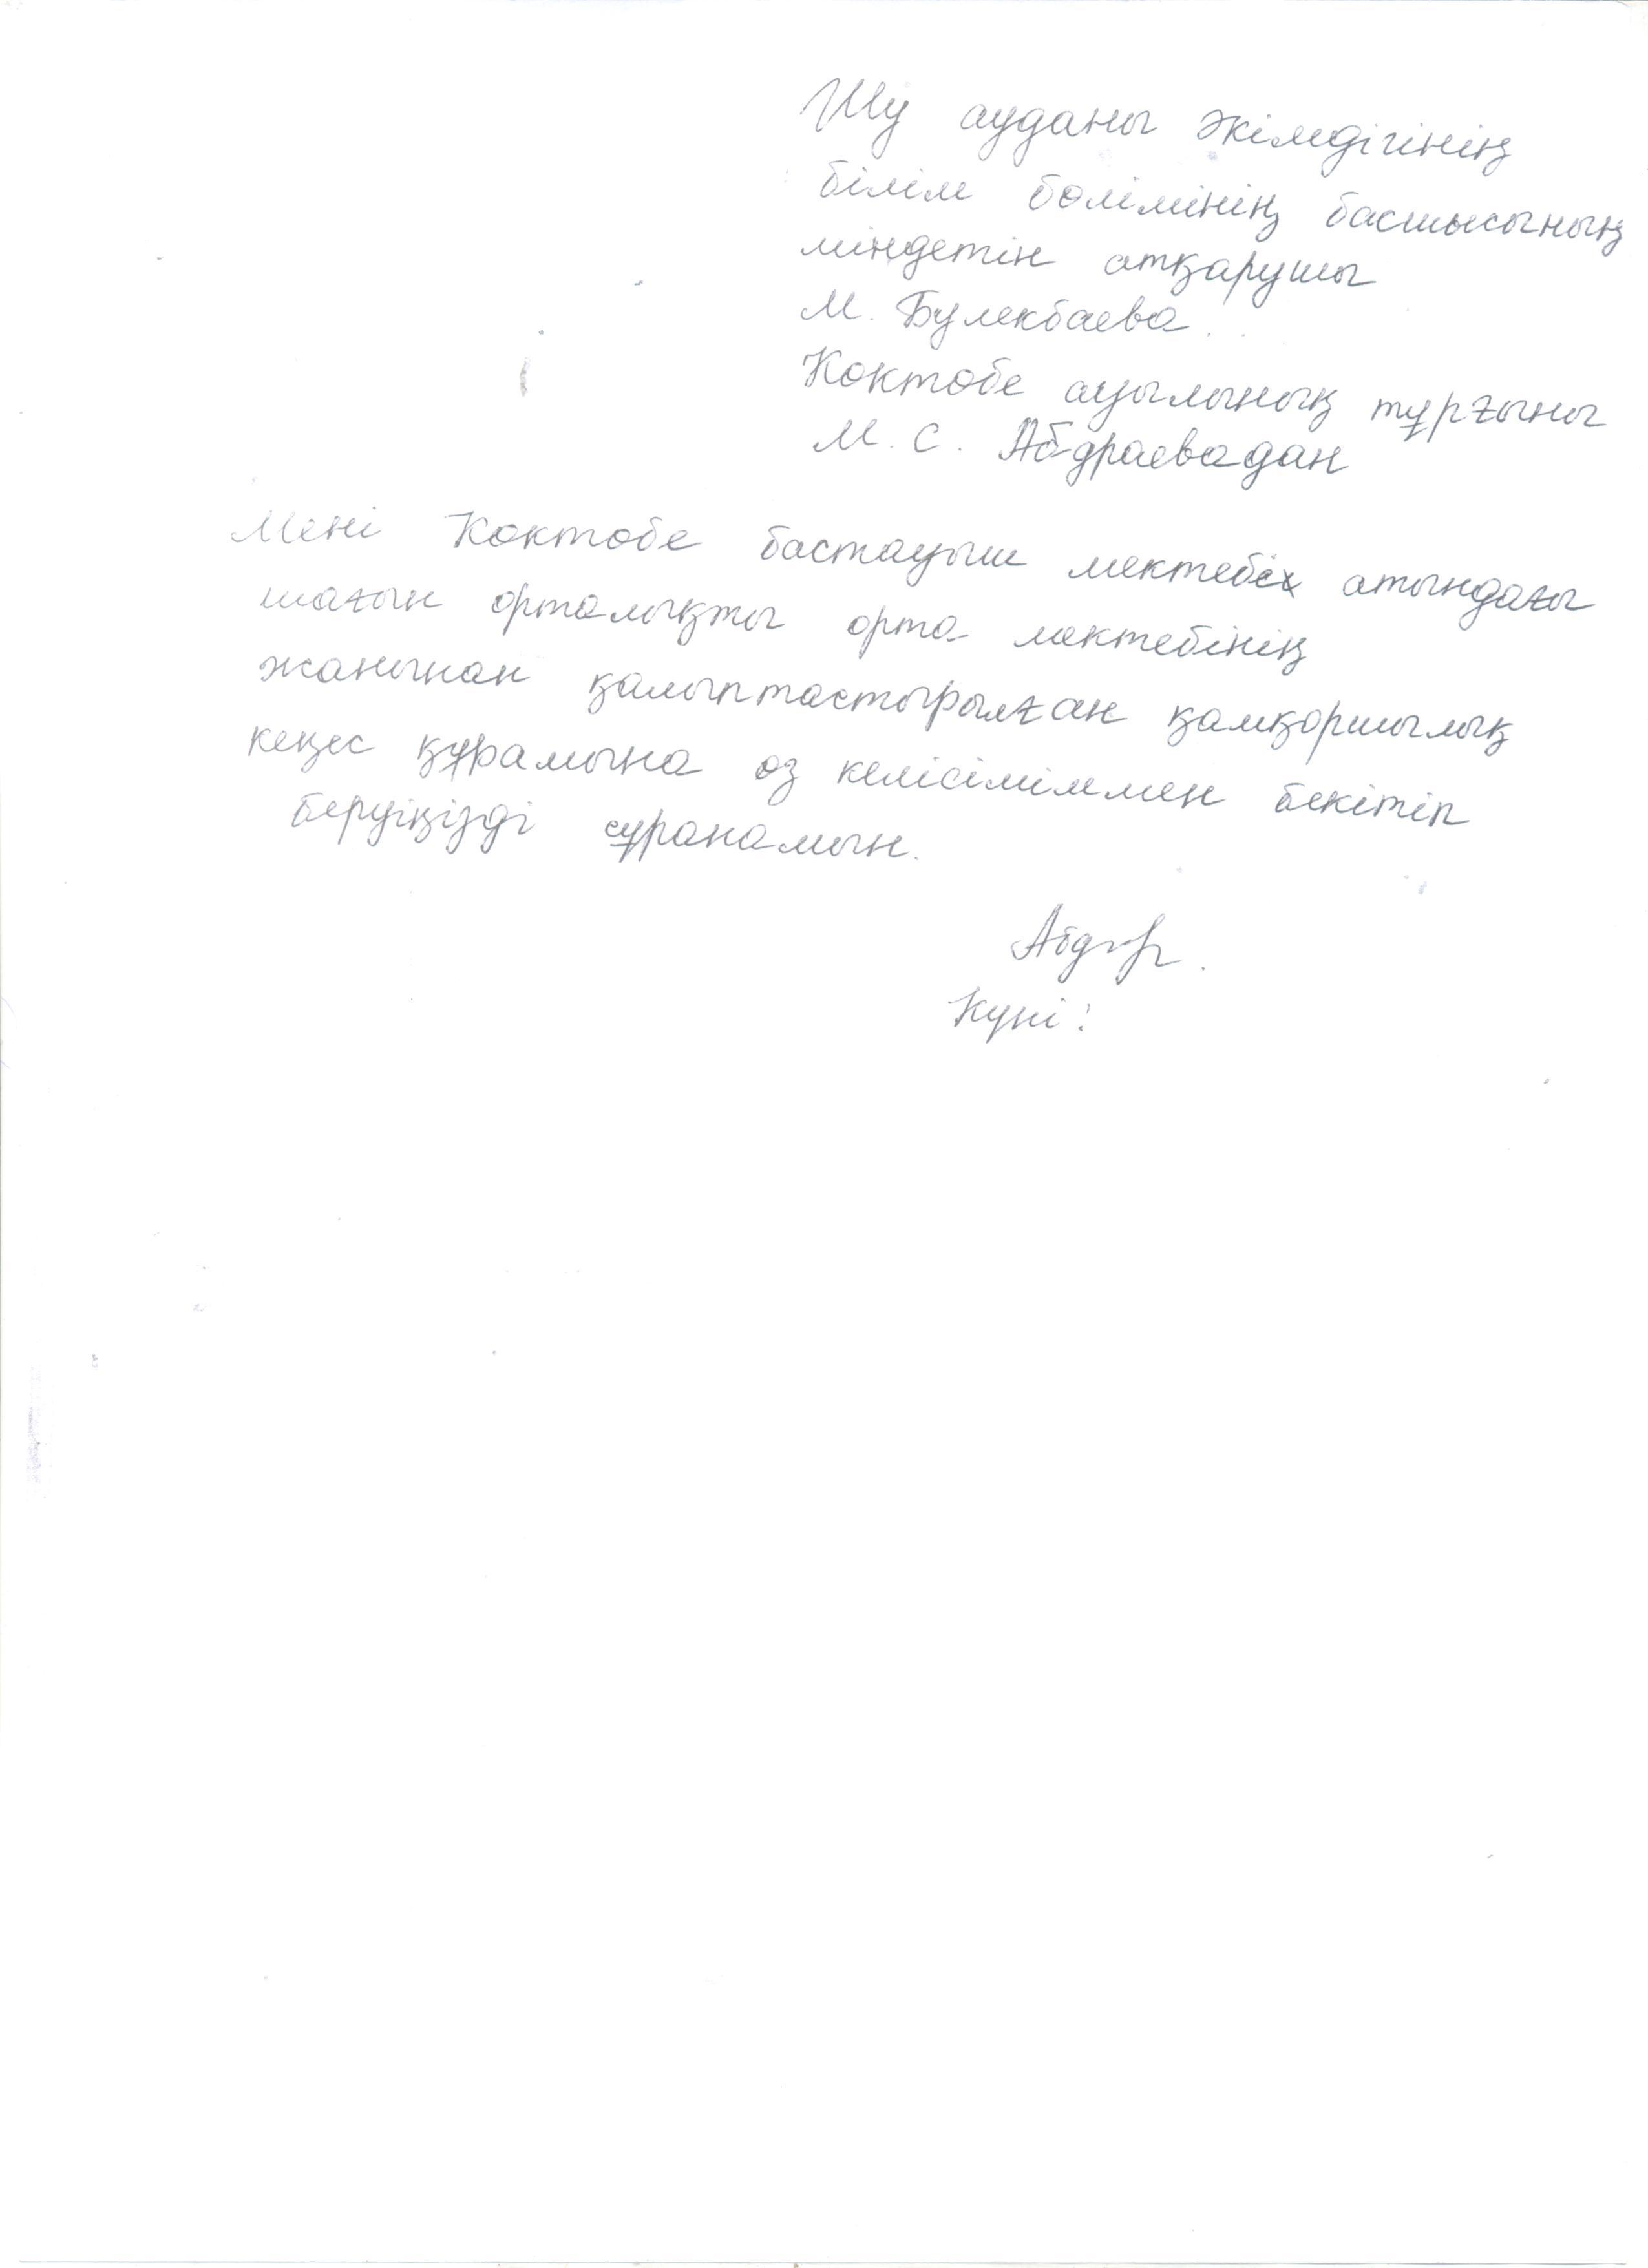 Шу ауданы әкімдігінің
білім бөлімінің басшысының
міндетін атқарушы
М. Булекбаева.
Коктобе ауылының тұрғыны
М. С. Абдраевадан
Мені Коктобе бастауыш мектебі атындағы
шағын орталықты орта мектебінің
жанынан қалыптастырылған қамқоршылық
кеңес құрамына өз келісіміммен бекітіп
беруіңізді сұранамын.
Күні: